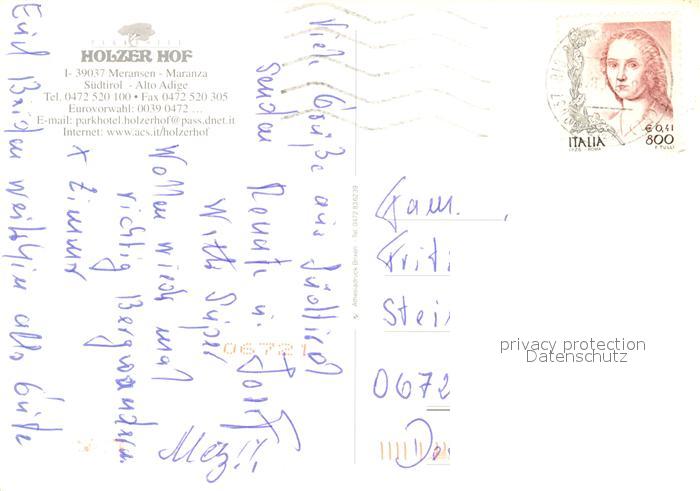 HOLZER HOF
I- 39037 Meransen - Maranza
Südtirol - Alto Adige
Tel. 0472 520 100 • Fax 0472 520 305
Eurovorwahl: 0039 0472 ...
E-mail: parkhotel.holzerhof@pass.dnet.it
Internet: www.acs.it/holzerhof
Viele Grüße aus Südtirol
senden
Renate u. Horst
Wetter Super
Wollen wieder mal
richtig Bergwandern
Euch Beiden weiterhin alles Gute
Athesiadruck Brixen Tel. 0472 836239
€ 0,41
ITALIA 800
F. TULLI
Fam.
Frit
Stei
0672
06721
privacy protection
Datenschutz